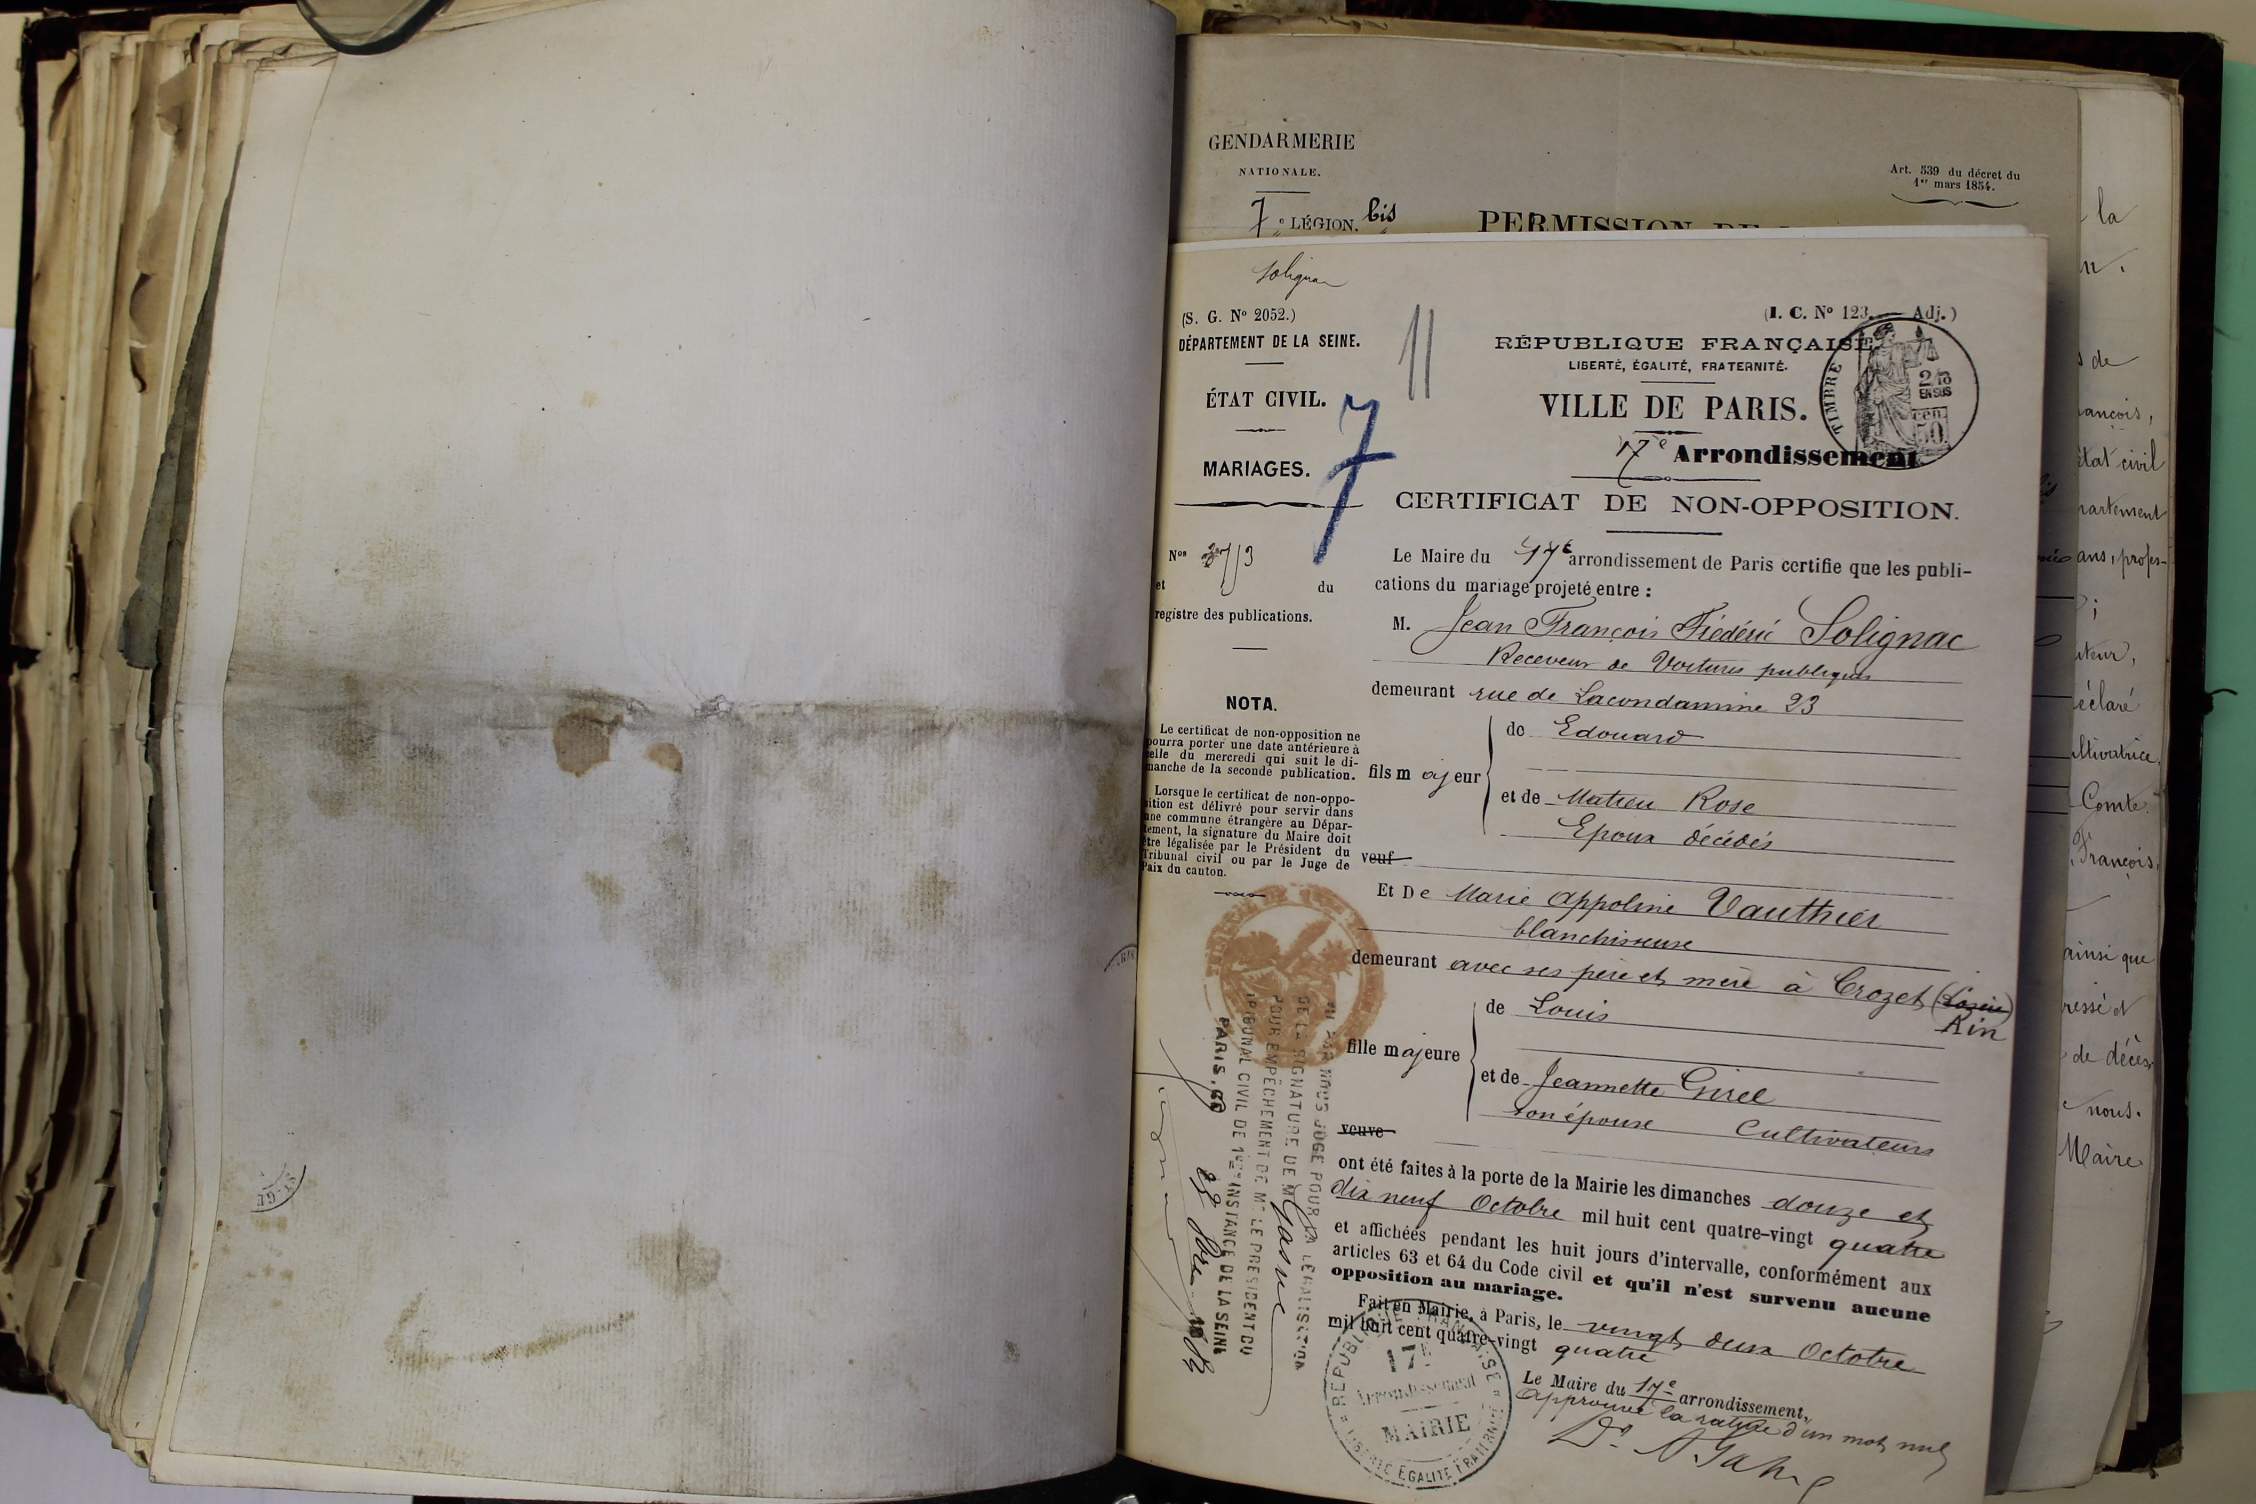 GENDARMERIE
NATIONALE.
7e LÉGION. bis
Art. 539 du décret du
1er mars 1854.
PERMISSION DE
Solignac
(S. G. No 2052.)
DÉPARTEMENT DE LA SEINE.
ÉTAT CIVIL.
MARIAGES.
7
11
Nos
et du
registre des publications.
NOTA.
Le certificat de non-opposition ne
pourra porter une date antérieure à
celle du mercredi qui suit le di-
manche de la seconde publication.
Lorsque le certificat de non-oppo-
sition est délivré pour servir dans
une commune étrangère au Dépar-
tement, la signature du Maire doit
être légalisée par le Président du
Tribunal civil ou par le Juge de
Paix du canton.
(I. C. No 123. — Adj.)
RÉPUBLIQUE FRANÇAISE
LIBERTÉ, ÉGALITÉ, FRATERNITÉ.
VILLE DE PARIS.
17e Arrondissement
TIMBRE
2/10
EN SUS
50
CERTIFICAT DE NON-OPPOSITION.
Le Maire du 17e arrondissement de Paris certifie que les publi-
cations du mariage projeté entre :
M. Jean François Frédéric Solignac
Receveur de Voitures publiques
demeurant rue de Lacondamine 23
de Edouard
fils majeur
et de Matieu Rose
Epoux décédés
veuf
Et De Marie Appoline Vauthier
blanchisseuse
demeurant avec ses père et mère à Crozet (Lozère)
Ain
de Louis
fille majeure
et de Jeannette Girel
son épouse Cultivateurs
veuve
ont été faites à la porte de la Mairie les dimanches douze et
dix neuf Octobre mil huit cent quatre-vingt quatre
et affichées pendant les huit jours d'intervalle, conformément aux
articles 63 et 64 du Code civil et qu'il n'est survenu aucune
opposition au mariage.
Fait en Mairie, à Paris, le vingt deux Octobre
mil huit cent quatre-vingt quatre
Le Maire du 17e arrondissement,
Approuvé la rature d'un mot nul
RÉPUBLIQUE FRANÇAISE
17E
Arrondissement
MAIRIE
LIBERTÉ EGALITÉ FRATERNITÉ
VU PAR NOUS JUGE POUR LA LÉGALISATION
DE LA SIGNATURE DE M
POUR EMPÊCHEMENT DE Mr LE PRÉSIDENT DU
TRIBUNAL CIVIL DE 1ère INSTANCE DE LA SEINE
PARIS, LE
la
s de
ançois,
état civil
partement
ans, profes-
uteur,
éclaré
ultivatrice
Comte
François,
ainsi que
ressé et
de décès,
nous.
Maire